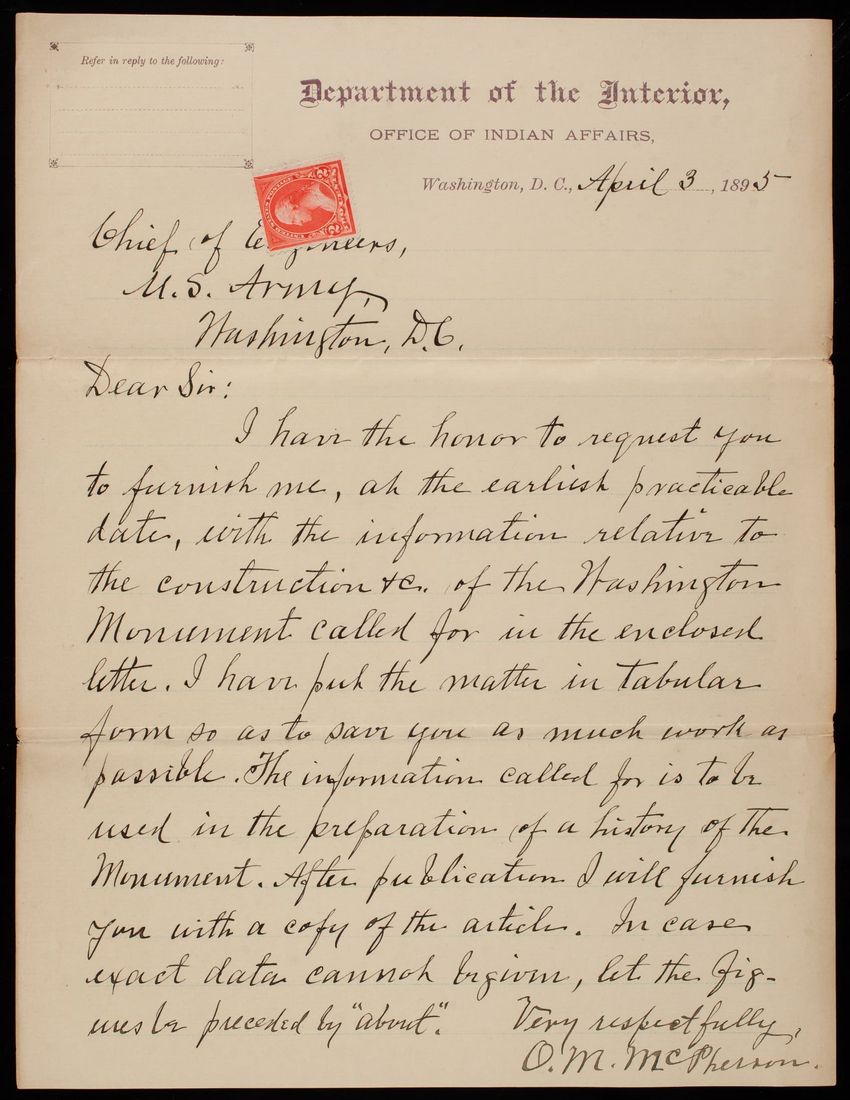 Refer in reply to the following:
Department of the Interior,
OFFICE OF INDIAN AFFAIRS,
Washington, D. C., April 3, 1895
Chief of Engineers,
U.S. Army,
Washington, D.C.
Dear Sir:
I have the honor to request you
to furnish me, at the earliest practicable
date, with the information relative to
the construction &c. of the Washington
Monument called for in the enclosed
letter. I have put the matter in tabular
form so as to save you as much work as
possible. The information called for is to be
used in the preparation of a history of the
Monument. After publication I will furnish
you with a copy of the article. In case
exact data cannot be given, let the fig-
ures be preceded by "about".
Very respectfully,
O. M. McPherson.